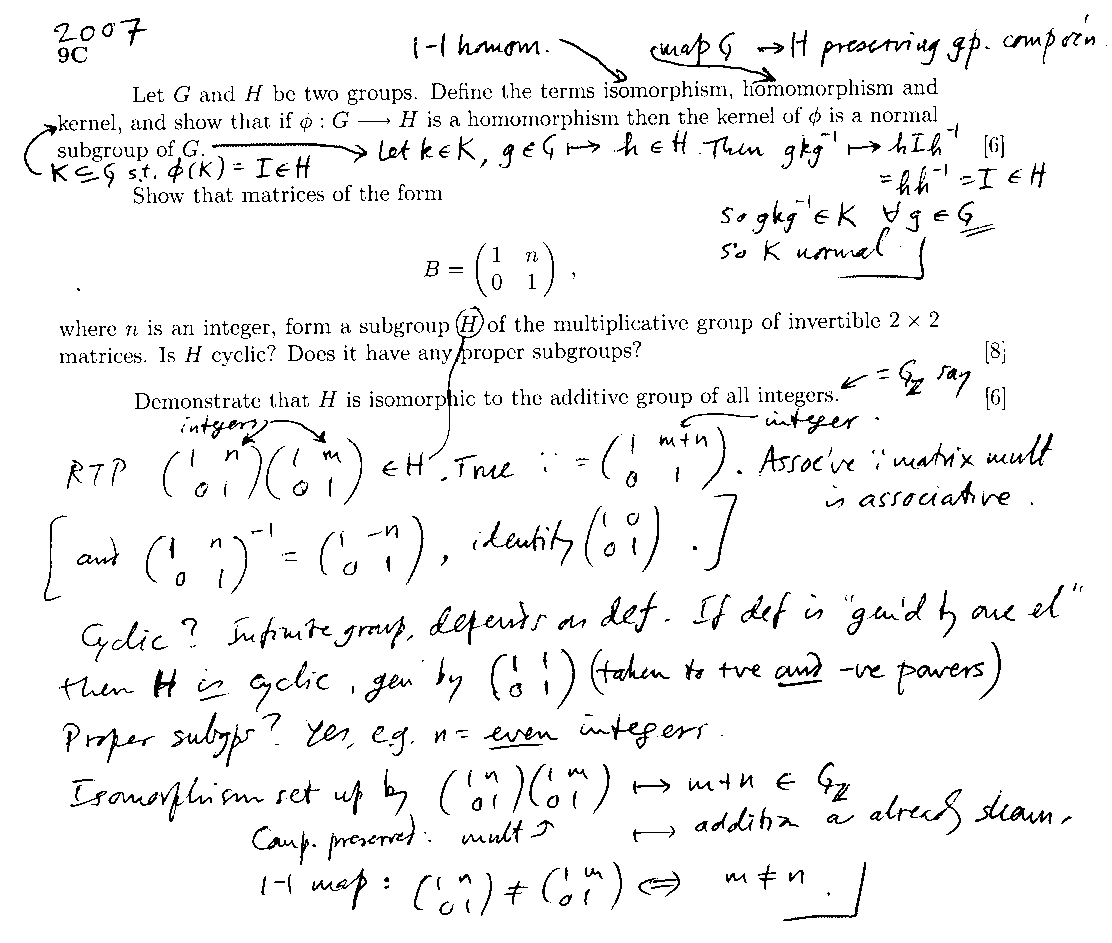 2007
9C
1-1 homom. map G → H preserving gp. comp'n.
Let G and H be two groups. Define the terms isomorphism, homomorphism and
kernel, and show that if φ : G ⟶ H is a homomorphism then the kernel of φ is a normal
subgroup of G. → Let k∈K, g∈G ↦ h∈H. Then gkg⁻¹ ↦ hIh⁻¹ [6]
K ⊆ G s.t. φ(K) = I ∈ H = hh⁻¹ = I ∈ H
Show that matrices of the form
So gkg⁻¹ ∈ K ∀ g ∈ G
So K normal
B = ( 1 n
0 1 ) ,
where n is an integer, form a subgroup H of the multiplicative group of invertible 2 × 2
matrices. Is H cyclic? Does it have any proper subgroups? [8]
Demonstrate that H is isomorphic to the additive group of all integers. ← = G_ℤ say [6]
integers integer.
RTP (1 n; 0 1)(1 m; 0 1) ∈ H. True ∵ = (1 m+n; 0 1). Assoc've ∵ matrix mult
is associative.
[and (1 n; 0 1)⁻¹ = (1 -n; 0 1), identity (1 0; 0 1).]
Cyclic? Infinite group, depends on def. If def is "gen'd by one el"
then H is cyclic, gen' by (1 1; 0 1) (taken to +ve and -ve powers)
Proper subgps? Yes, e.g. n = even integers.
Isomorphism set up by (1 n; 0 1)(1 m; 0 1) ↦ m+n ∈ G_ℤ
Comp. preserved: mult ↦ addition a already shown.
1-1 map: (1 n; 0 1) ≠ (1 m; 0 1) ⟺ m ≠ n.